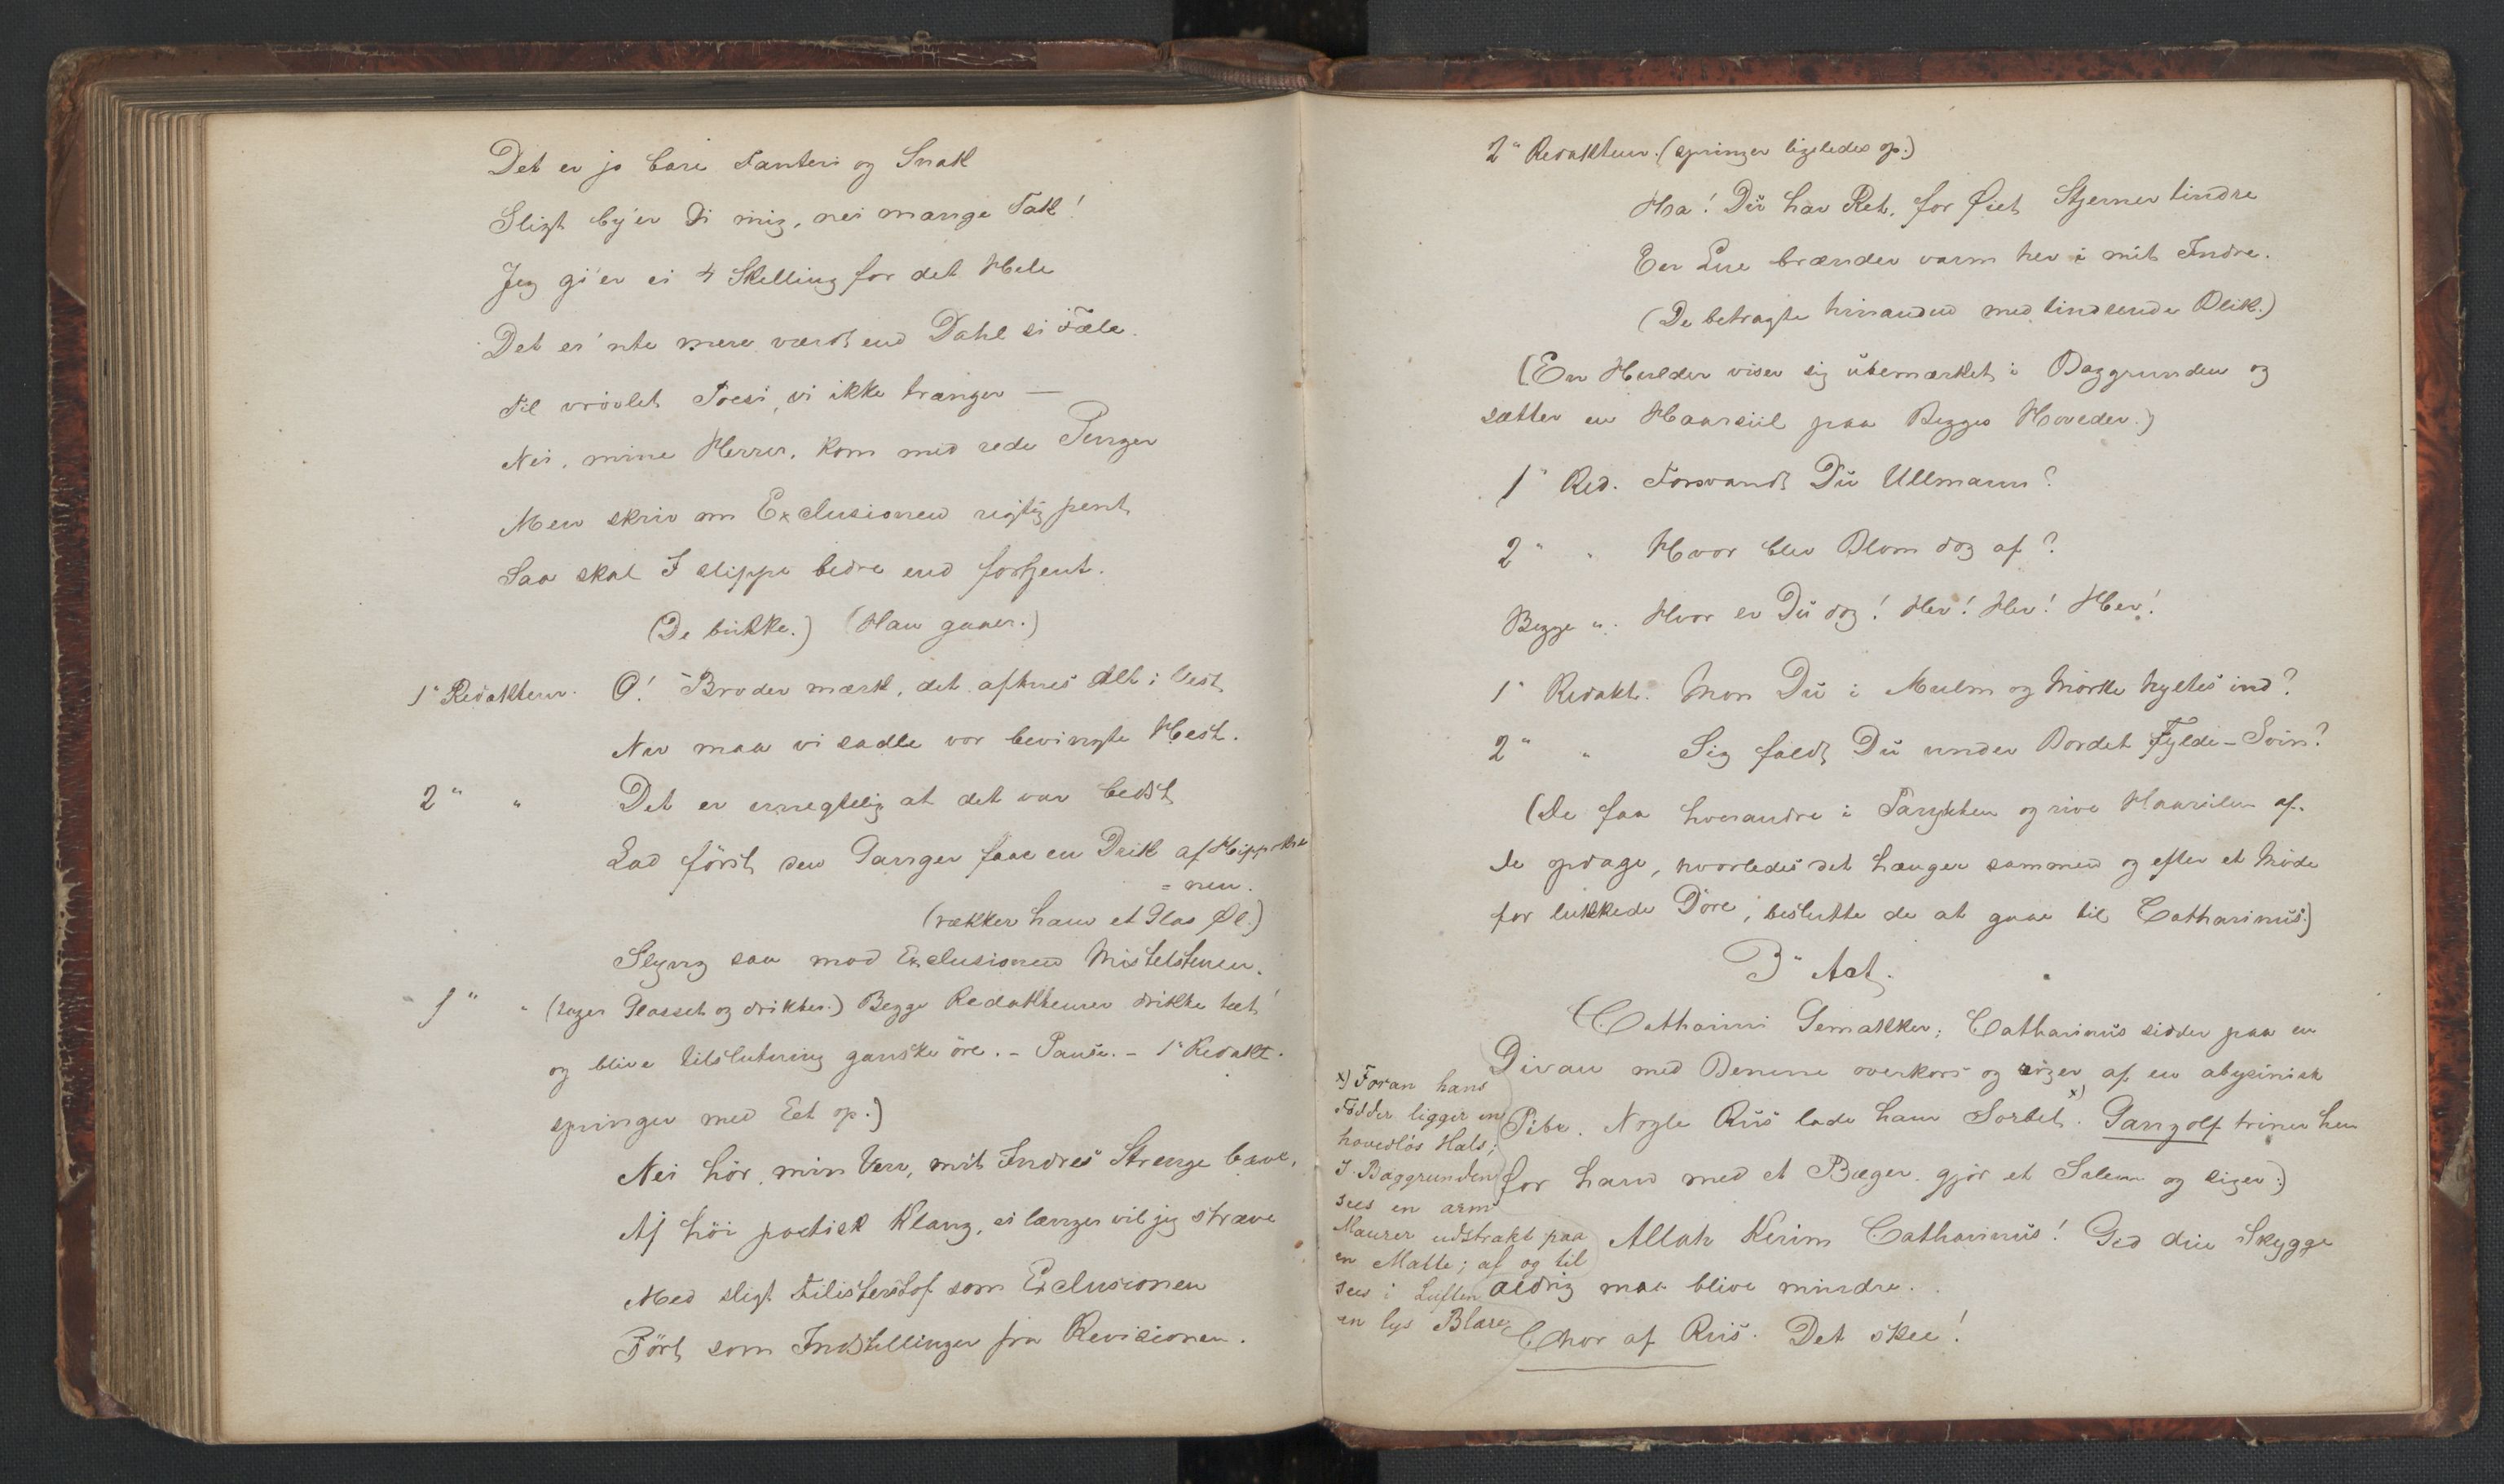 Det er jo bare Fanteri og Snak
Sligt by'er Di mig, nei mange Tak!
Jeg gi'er ei 4 Skilling for det Hele
Det er 'nte mere værdt end Dahl si Fæle.
Til vrövlet Poesi, vi ikke trænger —
Nei, mine Herrer, kom med rede Penger
Men skriv om Exclusionen rigtig pent,
Saa skal I slippe bedre end fortjent.
(De bukke.) (Han gaaer.)
1" Redakteur. O! Broder mærk, det aftnes Alt i Vest,
Nu maa vi sadle vor bevingte Hest.
2" " Det er unegtelig at det var bedst,
Lad först den Ganger faae en Drik af Hippokre
= nen.
(rækker ham et Glas Øl.)
Slyng saa mod Exclusionen Mistelstenen.
1" " (tager Glasset og drikker.) Begge Redakteurer drikke tæt
og blive tilslutning ganske öre. - Pause. - 1" Redakt.
springer med Eet op.)
Nei hör, min Ven, mit Indres Strenge bæve,
Af höi poetisk Klang, ei længer vil jeg stræve
Med sligt Filisterstof som Exclusionen
Tört som Indstillinger fra Revisionen.
2" Redakteur. (springer ligeledes op.)
Ha! Du har Ret, for Øiet Stjerner tindre
En Lue brænder varm her i mit Indre.
(De betragte hinanden med tindrende Blik.)
(En Hulder viser sig ubemærket i Baggrunden og
sætter en Haarsiil paa Begges Hoveder.)
1" Red. Forsvandt Du Ullmann?
2" " Hvor blev Blom dog af?
Begge ". Hvor er Du dog! Her! Her! Her!
1" Redakt. Mon Du i Mulm og Mörke hyltes ind?
2" " Sig faldt Du under Bordet Fylde-Svin?
(De faa hverandre i Parykken og rive Haarsilen af.
De opdage, hvorledes det hænger sammen og efter et Möde
for lukkede Döre, beslutte de at gaae til Catharinus.)
3" Act.
(Catharini Gemakker; Catharinus sidder paa en
Divan med Benene overkors og röger af en abysinisk
Pibe. Nogle Rus lade ham Sorbet x). Gangolf triner hen
for ham med et Bæger, gjör et Salem og siger:)
Allah Kerim Catharinus! Gid din Skygge
aldrig maa blive mindre.
Chor af Rus. Det skee!
x) Foran hans
Födder ligger en
hovedlös Hals;
I Baggrunden
sees en arm
Maurer udstrakt paa
en Matte; af og til
sees i Luften
en lys Blære